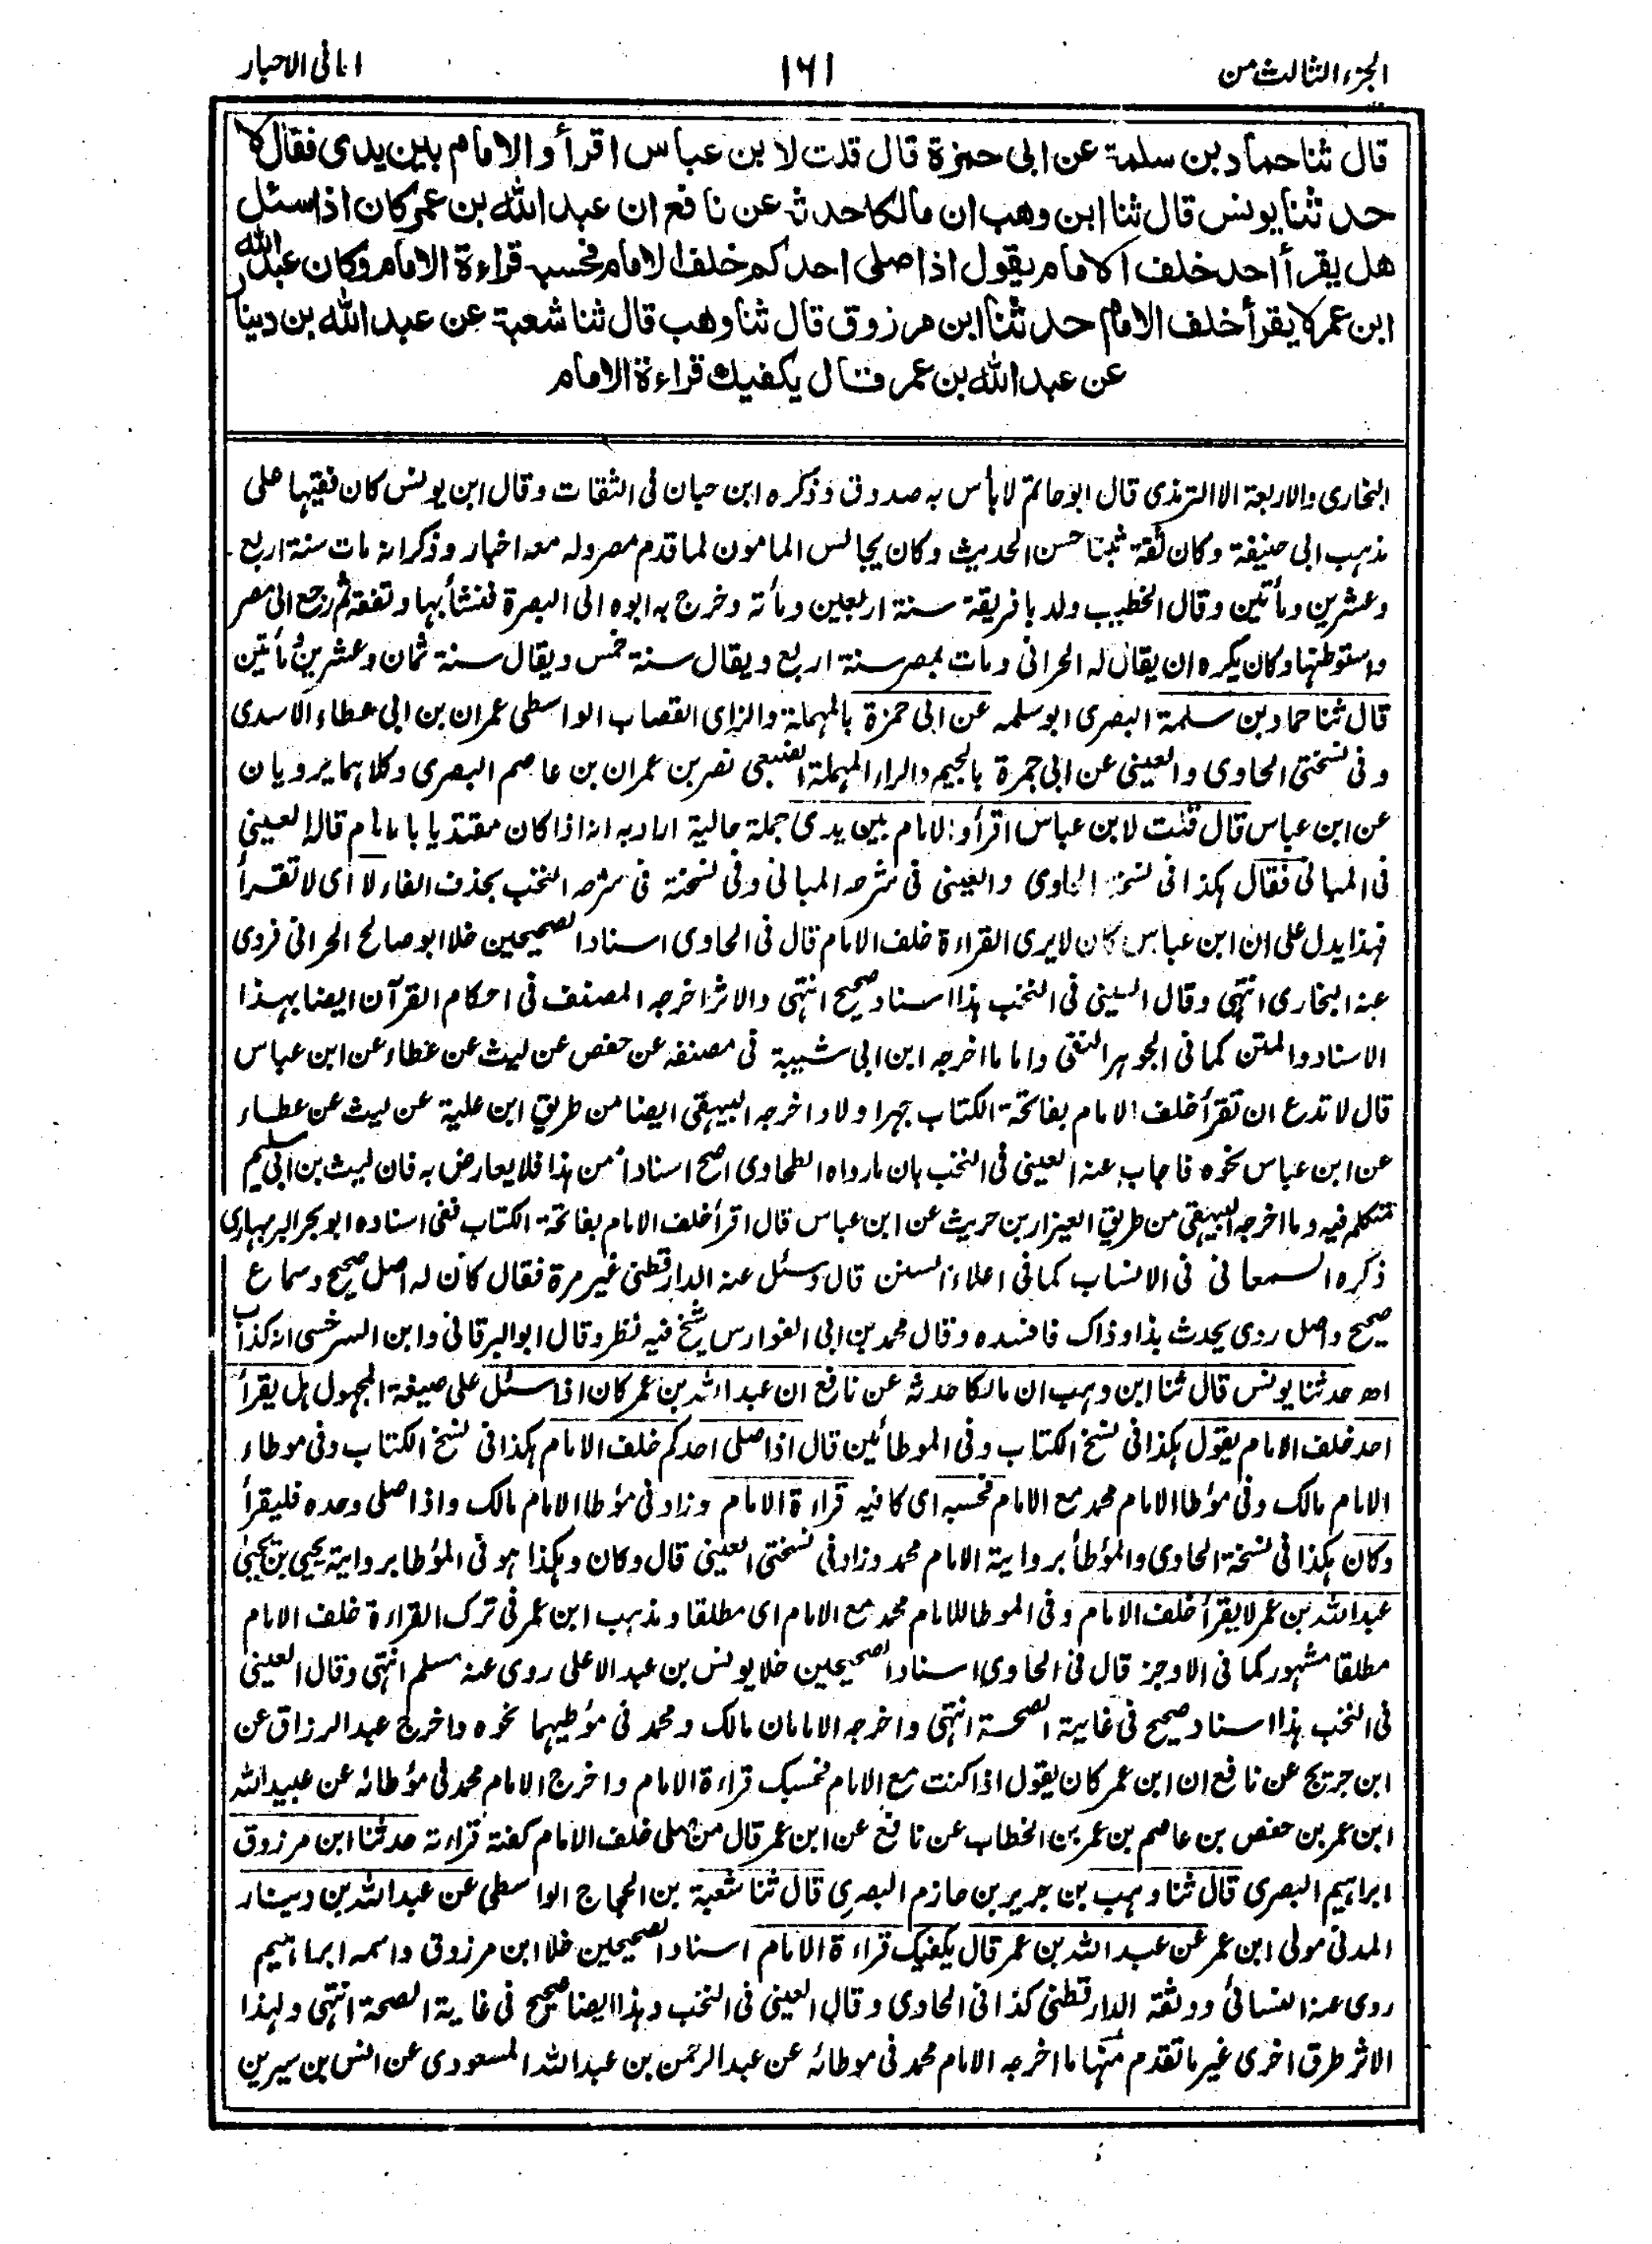 الجزء الثالث من
١٦١
امانى الاحبار
قال ثنا حماد بن سلمة عن ابى حمزة قال قلت لابن عباس اقرأ والامام بين يدى فقال لا
حدثنا يونس قال ثنا ابن وهب ان مالكا حدثه عن نافع ان عبد الله بن عمر كان اذا سئل
هل يقرأ احد خلف الامام يقول اذا صلى احدكم خلف الامام فحسبه قراءة الامام وكان عبد الله
ابن عمر لا يقرأ خلف الامام حدثنا ابن مرزوق قال ثنا وهب قال ثنا شعبة عن عبد الله بن دينار
عن عبد الله بن عمر قال يكفيك قراءة الامام
البخارى والاربعة الا الترمذى قال ابو حاتم لا بأس به صدوق وذكره ابن حبان فى الثقات وقال ابن يونس كان فقيها على
مذهب ابى حنيفة وكان ثقة ثبتا حسن الحديث وكان يجالس المامون لما قدم مصر وله معه اخبار وذكر انه مات سنة اربع
وعشرين ومأتين وقال الخطيب ولد بافريقة سنة اربعين ومأتة وخرج به ابوه الى البصرة فنشأ بها وتفقه ثم رجع الى مصر
واستوطنها وكان يكره ان يقال له الحرانى ومات بمصر سنة اربع ويقال سنة خمس ويقال سنة ثمان وعشرين ومأتين
قال ثنا حماد بن سلمة البصرى ابو سلمه عن ابى حمزة بالمهملة والزاى القصاب الواسطى عمران بن ابى عطاء الاسدى
وفى نسختى الحاوى والعينى عن ابى جمرة بالجيم والراء المهملة الضبعى نصر بن عمران بن عاصم البصرى وكلاهما يرويان
عن ابن عباس قال قلت لابن عباس اقرأ والامام بين يدى جملة حالية اراد به انه اذا كان مقتديا بامام قاله العينى
فى المبانى فقال هكذا فى نسخة الحاوى والعينى فى شرحه المبانى وفى نسخته فى شرحه النخب بحذف الفاء لا اى لا تقرأ
فهذا يدل على ان ابن عباس كان لا يرى القراءة خلف الامام قال فى الحاوى اسناد الصحيحين خلا ابو صالح الحرانى فروى
عنه البخارى انتهى وقال العينى فى النخب هذا اسناد صحيح انتهى والاثر اخرجه المصنف فى احكام القرآن ايضا بهذا
الاسناد والمتن كما فى الجوهر النقى واما ما اخرجه ابن ابى شيبة فى مصنفه عن حفص عن ليث عن عطاء عن ابن عباس
قال لا تدع ان تقرأ خلف الامام بفاتحة الكتاب جهر او لا واخرجه البيهقى ايضا من طريق ابن علية عن ليث عن عطاء
عن ابن عباس نحوه فاجاب عنه العينى فى النخب بان ما رواه الطحاوى اصح اسنادا من هذا فلا يعارض به فان ليث بن ابى سليم
متكلم فيه وما اخرجه البيهقى من طريق العيزار بن حريث عن ابن عباس قال اقرأ خلف الامام بفاتحة الكتاب ففى اسناده ابو بحر البربهارى
ذكره السمعانى فى الانساب كما فى اعلاء السنن قال وسئل عنه الدارقطنى غير مرة فقال كان له اصل صحيح وسماع
صحيح واصل ردى يحدث بذا وذاك فافسده وقال محمد بن ابى الفوارس شيخ فيه نظر وقال ابو البرقانى وابن السرخسى انه كذاب
اھ حدثنا يونس قال ثنا ابن وهب ان مالكا حدثه عن نافع ان عبد الله بن عمر كان اذا سئل على صيغة المجهول هل يقرأ
احد خلف الامام يقول هكذا فى نسخ الكتاب وفى الموطائين قال اذا صلى احدكم خلف الامام هكذا فى نسخ الكتاب وفى موطاء
الامام مالك وفى مؤطا الامام محمد مع الامام فحسبه اى كافيه قراءة الامام وزاد فى مؤطا الامام مالك واذا صلى وحده فليقرأ
وكان هكذا فى نسخة الحاوى والمؤطأ برواية الامام محمد وزاد فى نسختى العينى قال وكان وهكذا هو فى المؤطا برواية يحيى بن يحيى
عبد الله بن عمر لا يقرأ خلف الامام وفى الموطا للامام محمد مع الامام اى مطلقا ومذهب ابن عمر فى ترك القراءة خلف الامام
مطلقا مشهور كما فى الاوجز قال فى الحاوى اسناد الصحيحين خلا يونس بن عبد الاعلى روى عنه مسلم انتهى وقال العينى
فى النخب هذا اسناد صحيح فى غاية الصحة انتهى واخرجه الامامان مالك ومحمد فى مؤطيهما نحوه واخرج عبد الرزاق عن
ابن جريج عن نافع ان ابن عمر كان يقول اذا كنت مع الامام فحسبك قراءة الامام واخرج الامام محمد فى مؤطائه عن عبيد الله
ابن عمر بن حفص بن عاصم بن عمر بن الخطاب عن نافع عن ابن عمر قال من صلى خلف الامام كفته قراءته حدثنا ابن مرزوق
ابراهيم البصرى قال ثنا وهب بن جرير بن حازم البصرى قال ثنا شعبة بن الحجاج الواسطى عن عبد الله بن دينار
المدنى مولى ابن عمر عن عبد الله بن عمر قال يكفيك قراءة الامام اسناد الصحيحين خلا ابن مرزوق واسمه ابراهيم
روى عنه النسائى ووثقه الدارقطنى كذا فى الحاوى وقال العينى فى النخب وهذا ايضا صحيح فى غاية الصحة انتهى ولهذا
الاثر طرق اخرى غير ما تقدم منها ما اخرجه الامام محمد فى موطائه عن عبد الرحمن بن عبد الله المسعودى عن انس بن سيرين